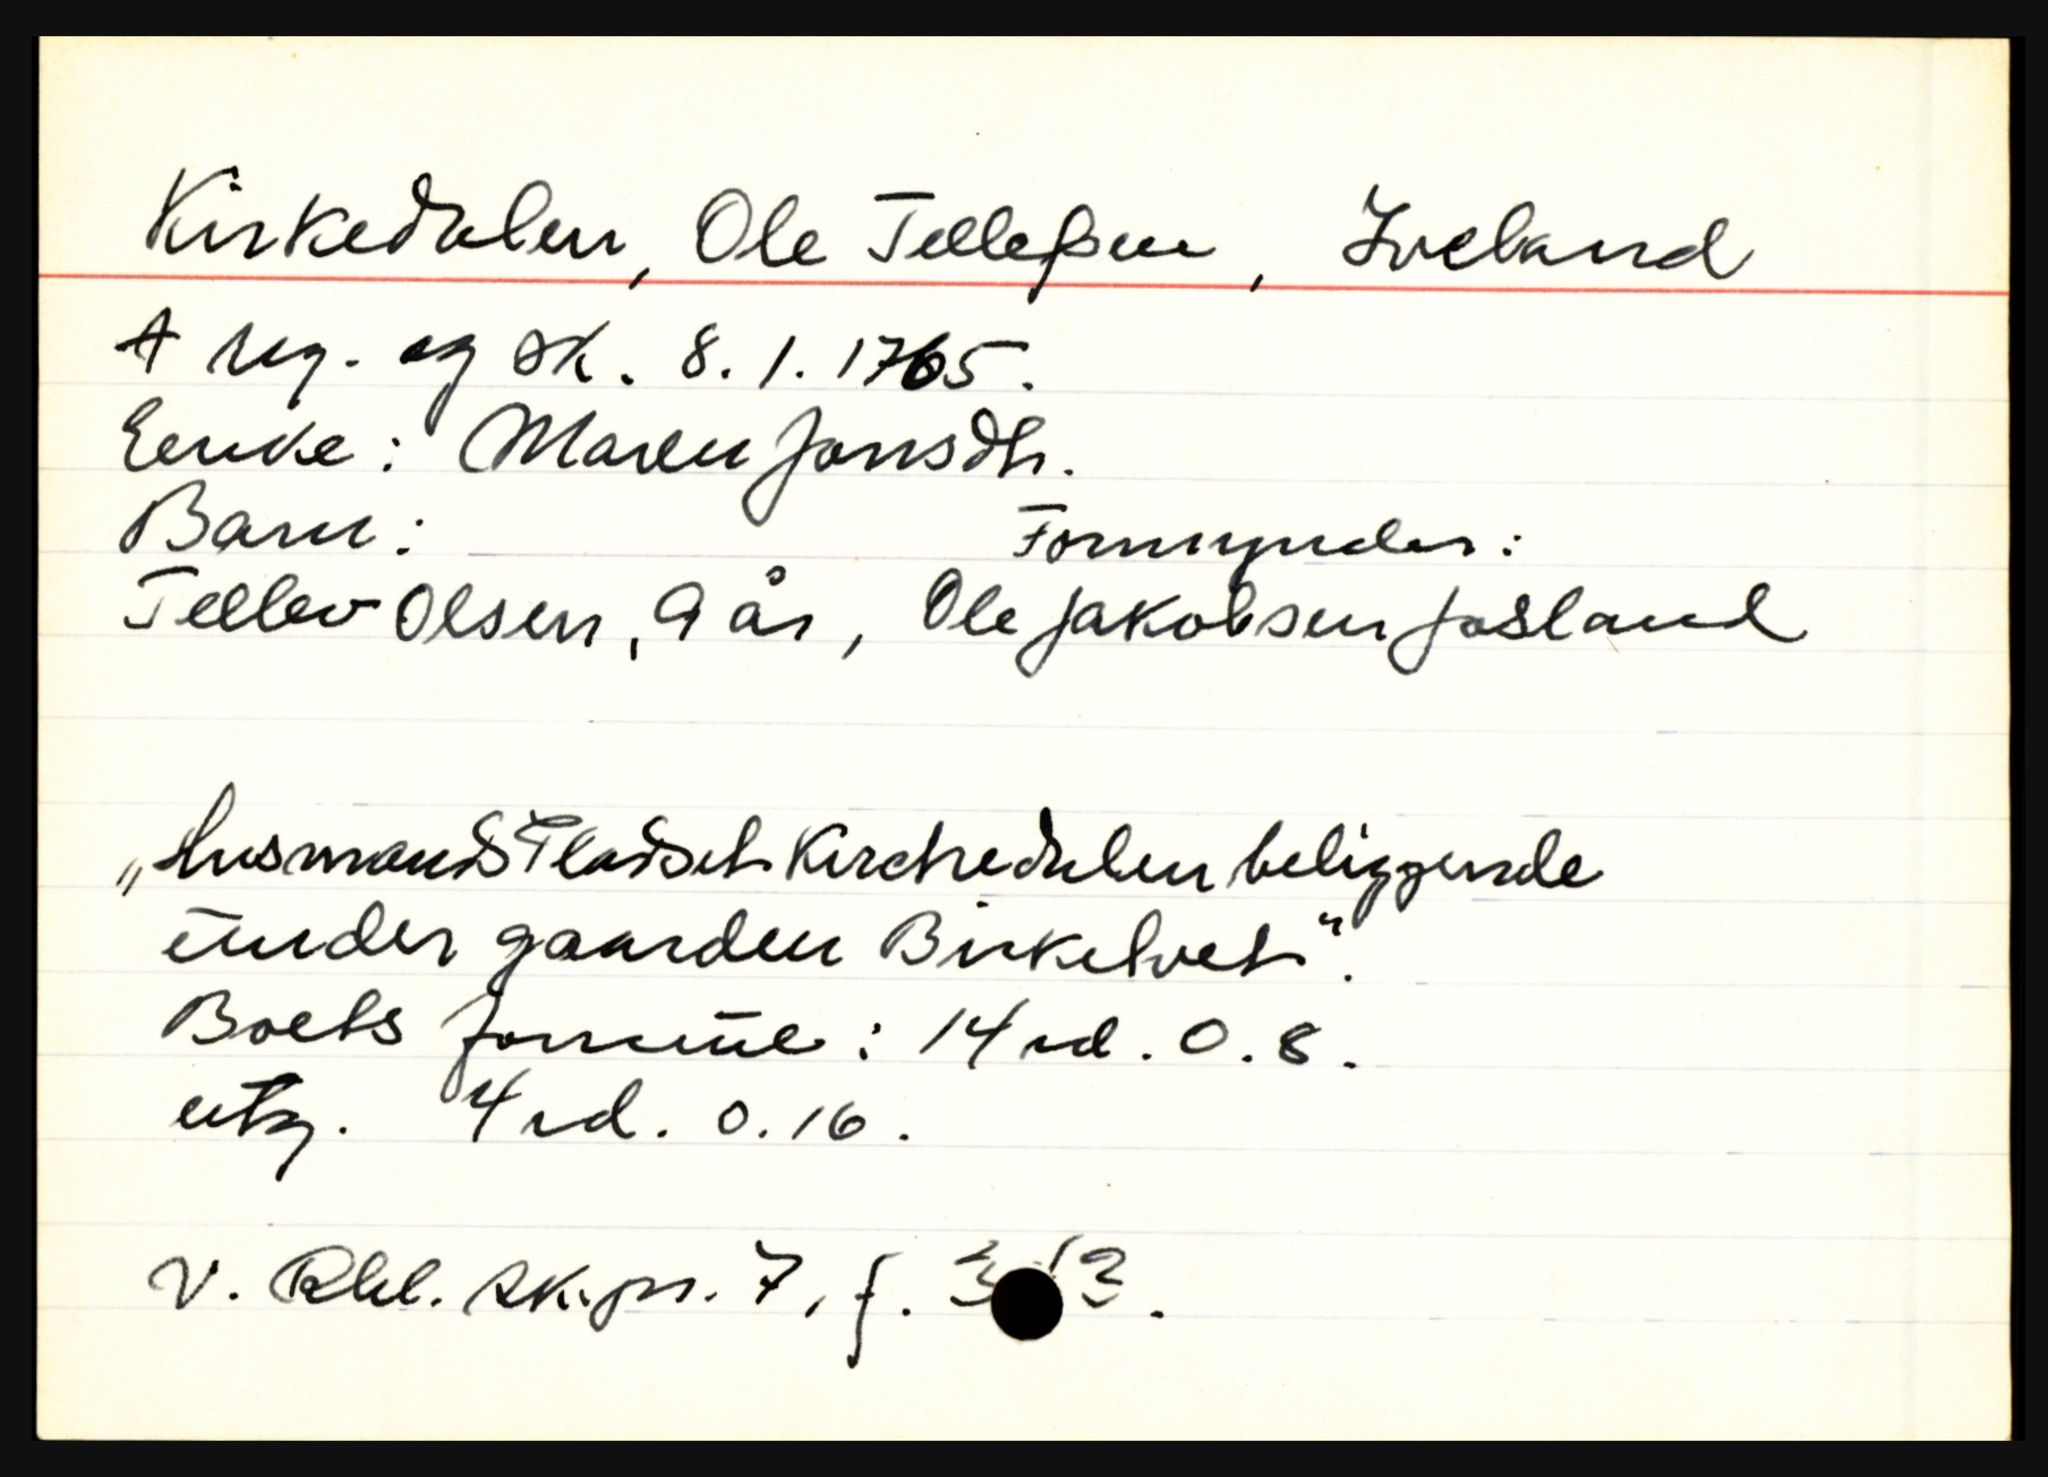 Kirkedalen, Ole Telleßen, Iveland
† reg. og sk. 8.1.1765.
Encke: Maren Jonsdtr.
Barn: Formynder:
Tellev Olsen, 9 år, Ole Jakobsen Jøsland
„Husmands Pladset Kirchedalen beliggende
under gaarden Birketvet".
Boets formue: 14 rd. 0. 8.
utg. 4 rd. 0. 16.
V. Rbl. sk.pr. 7, f.